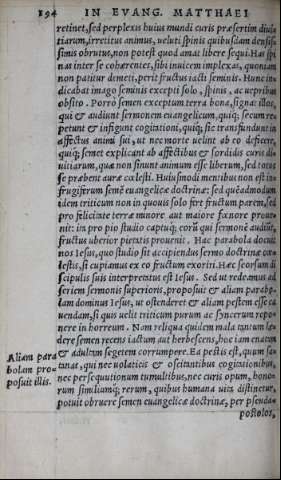 194 IN EVANG. MATTHAEI
retinet, sed perplexis huius mundi curis præsertim diui
tiarum, irretitus animus, ueluti spinis quibusdam densis
simis obrutus, non potest quod amat libere sequi. Has spi
nas inter se cohærentes, sibi inuicem implexas, quoniam
non patitur demeti, perit fructus iacti seminis. Hunc in
dicabat imago seminis excepti solo, spinis, ac uepribus
obsito. Porro semen exceptum terra bona, signat illos,
qui & audiunt sermonem euangelicum, quiq; secum re
petunt & infigunt cogitationi, quiq; sic transfundunt in
affectus animi sui, ut nec morte uelint ab eo desicere,
quiq; semet explicant ab affectibus & sordidis curis di
uitiarum, quæ non sinunt animum esse liberum, sed totos
se præbent auræ cœlesti. Huiusmodi mentibus non est in
frugiferum semē euangelicæ doctrinæ: sed quēadmodum
idem triticum non in quouis solo fert fructum parem, sed
pro felicitate terræ minore aut maiore fœnore proue-
nit: in pro pio studio captuq; eorū qui sermonē audiūt,
fructus uberior pietatis prouenit. Hac parabola docuit
nos Iesus, quo studio sit accipiendus sermo doctrinæ cœ-
lestis, si cupiamus ex eo fructum exoriri. Hæc seorsum di
scipulis suis interpretatus est Iesus. Sed ut redeamus ad
seriem sermonis superioris, proposuit & aliam parabo-
lam dominus Iesus, ut ostenderet & aliam pestem esse ca
uendam, si quis uelit triticum purum ac syncerum repo-
nere in horreum. Nam reliqua quidem mala tantum læ-
dere semen recens iactum aut herbescens, hoc iam enatam
& adultam segetem corrumpere. Ea pestis est, quum sa-
tanas, qui nec uolaticis & oscitantibus cogitationibus,
nec persequutionum tumultibus, nec curis opum, hono-
rum similiumq; rerum, quibus humana uita distinetur,
potuit obruere semen euangelicæ doctrinæ, per pseuda-
postolos,
Aliam para
bolam pro-
posuit illis.